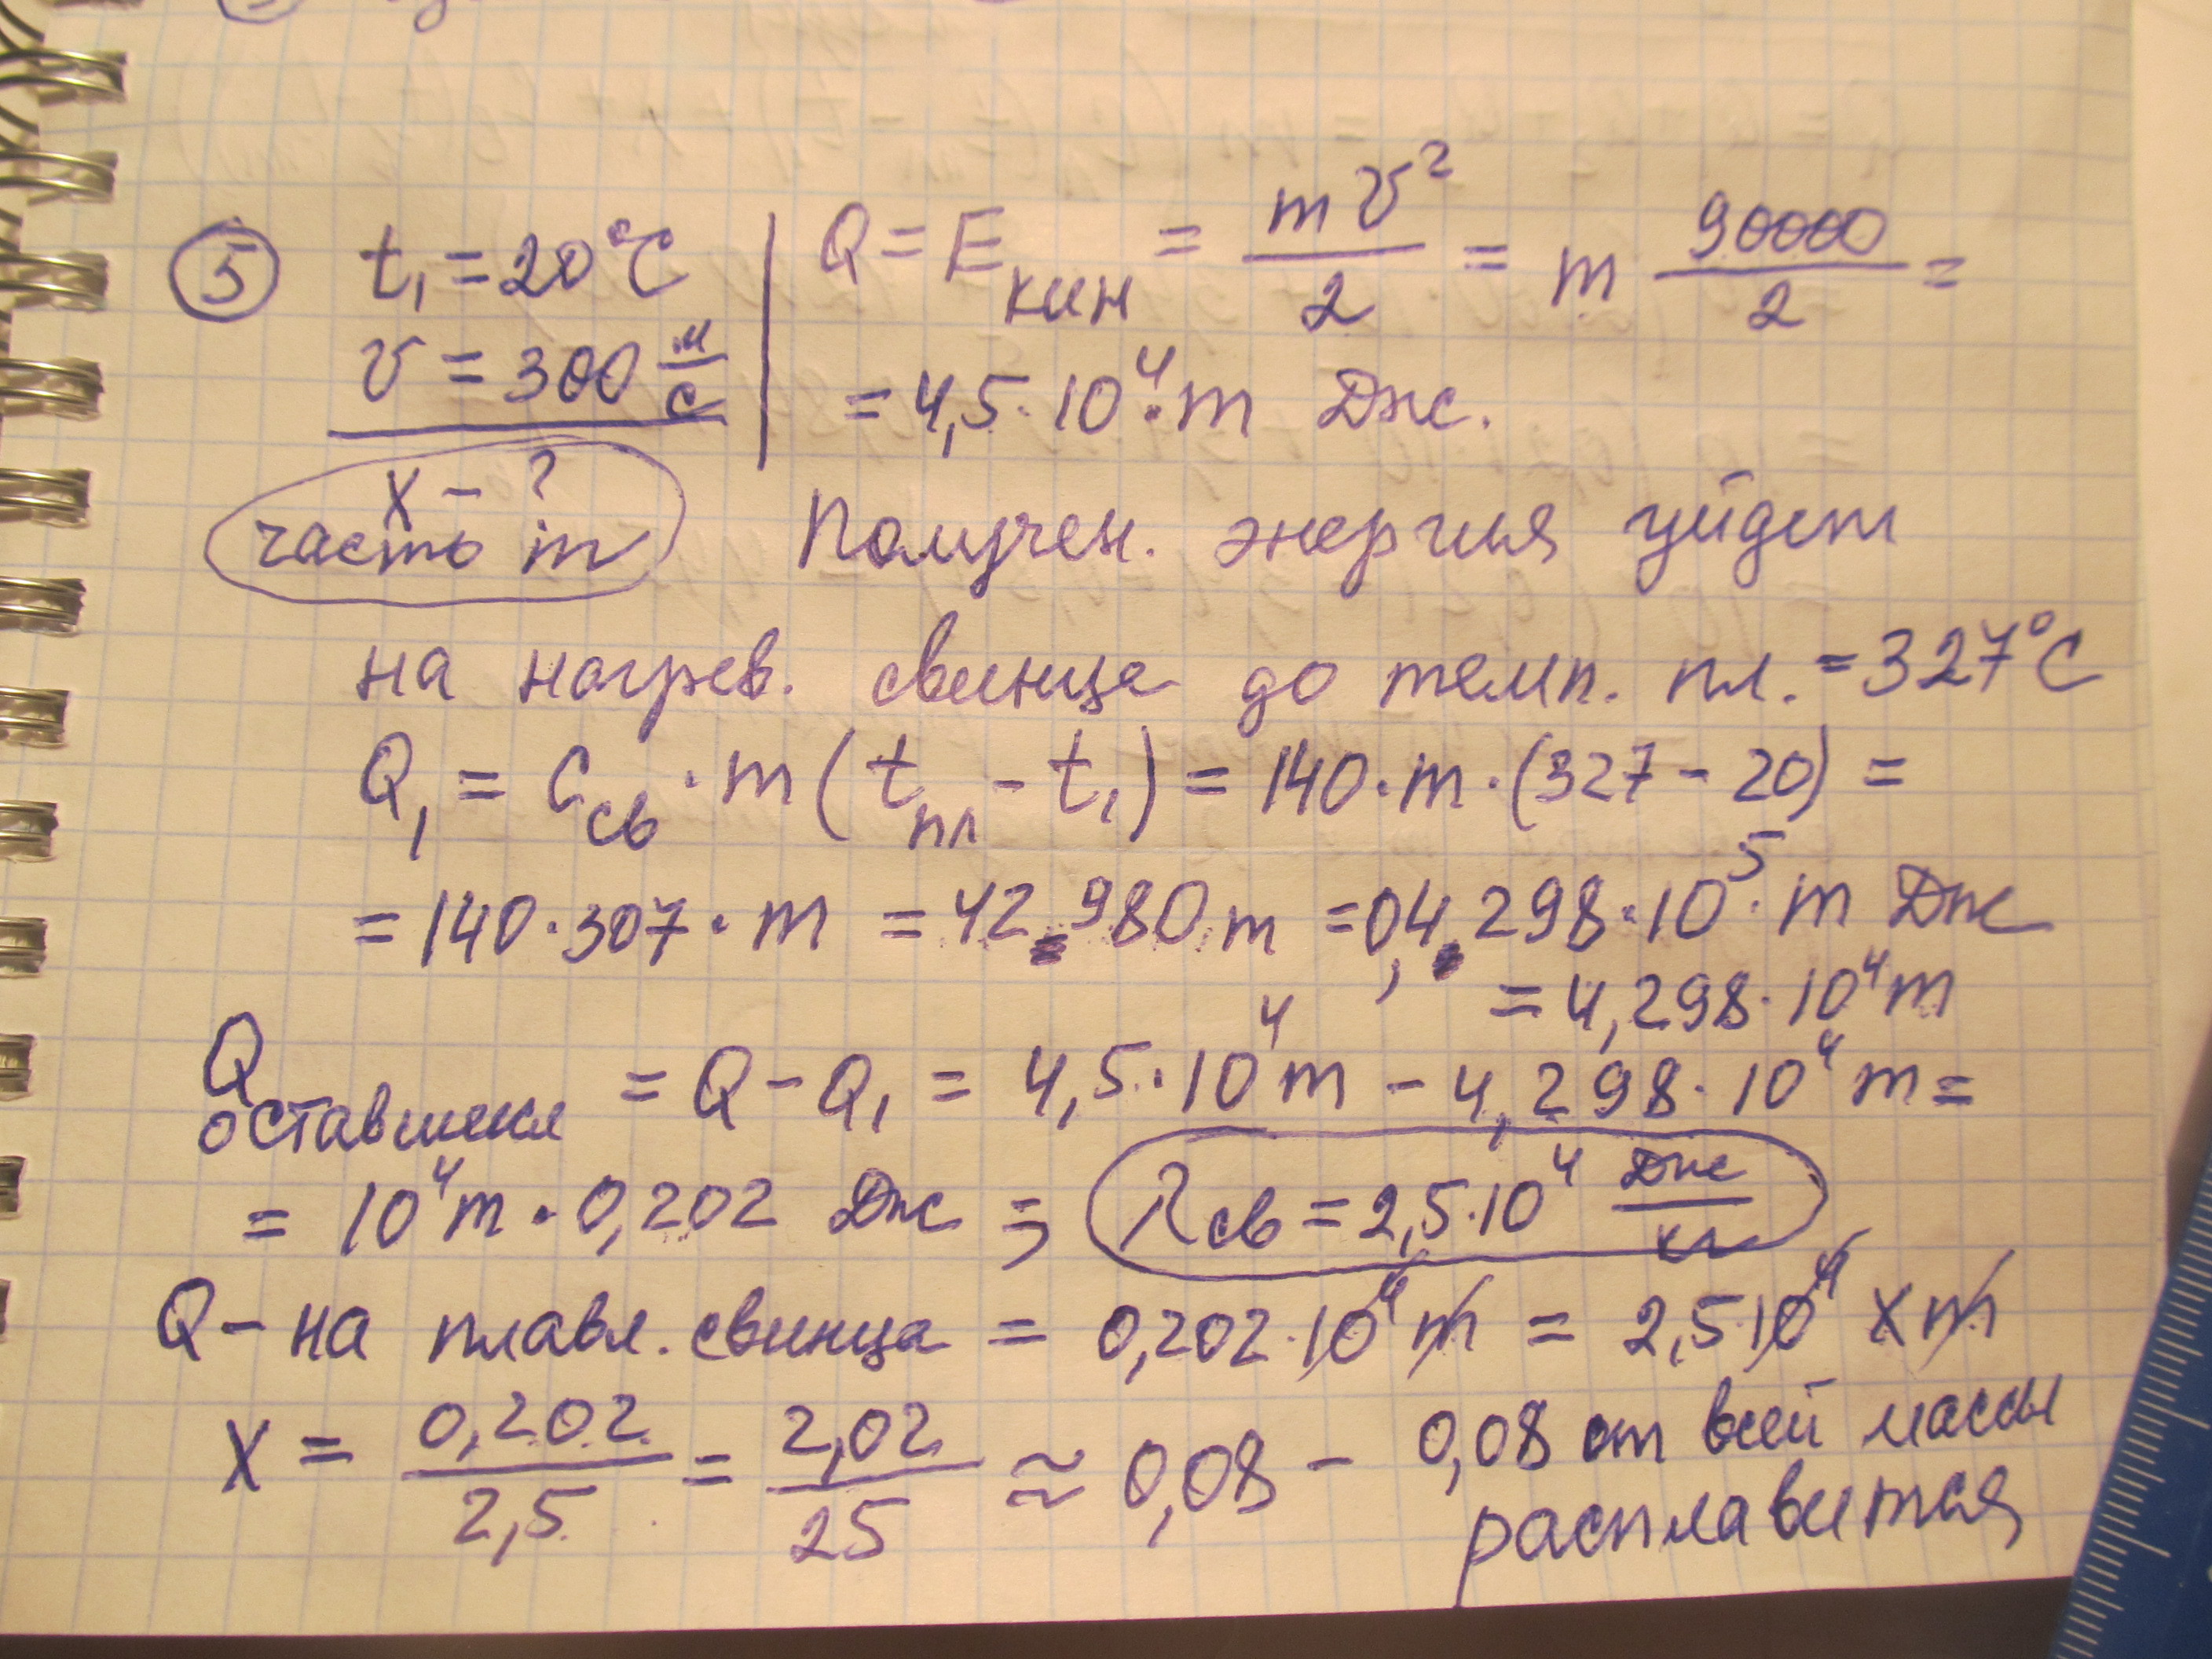 ⑤ t₁ = 20°C | Q = E кин = mv²/2 = m 90000/2 =
v = 300 м/с | = 4,5·10⁴·m Дж.
x - ?
часть m
Получен. энергия уйдет
на нагрев. свинца до темп. пл. = 327°C
Q₁ = Cсв · m (tпл - t₁) = 140·m·(327 - 20) =
= 140·307·m = 42 980 m = 0,4298·10⁵·m Дж
= 4,298·10⁴m
Q оставшееся = Q - Q₁ = 4,5·10⁴m - 4,298·10⁴m =
= 10⁴m·0,202 Дж ⇒ λсв = 2,5·10⁴ Дж/кг
Q - на плавл. свинца = 0,202·10⁴m = 2,5·10⁴ xm
x = 0,202/2,5 = 2,02/25 ≈ 0,08 - 0,08 от всей массы
расплавится